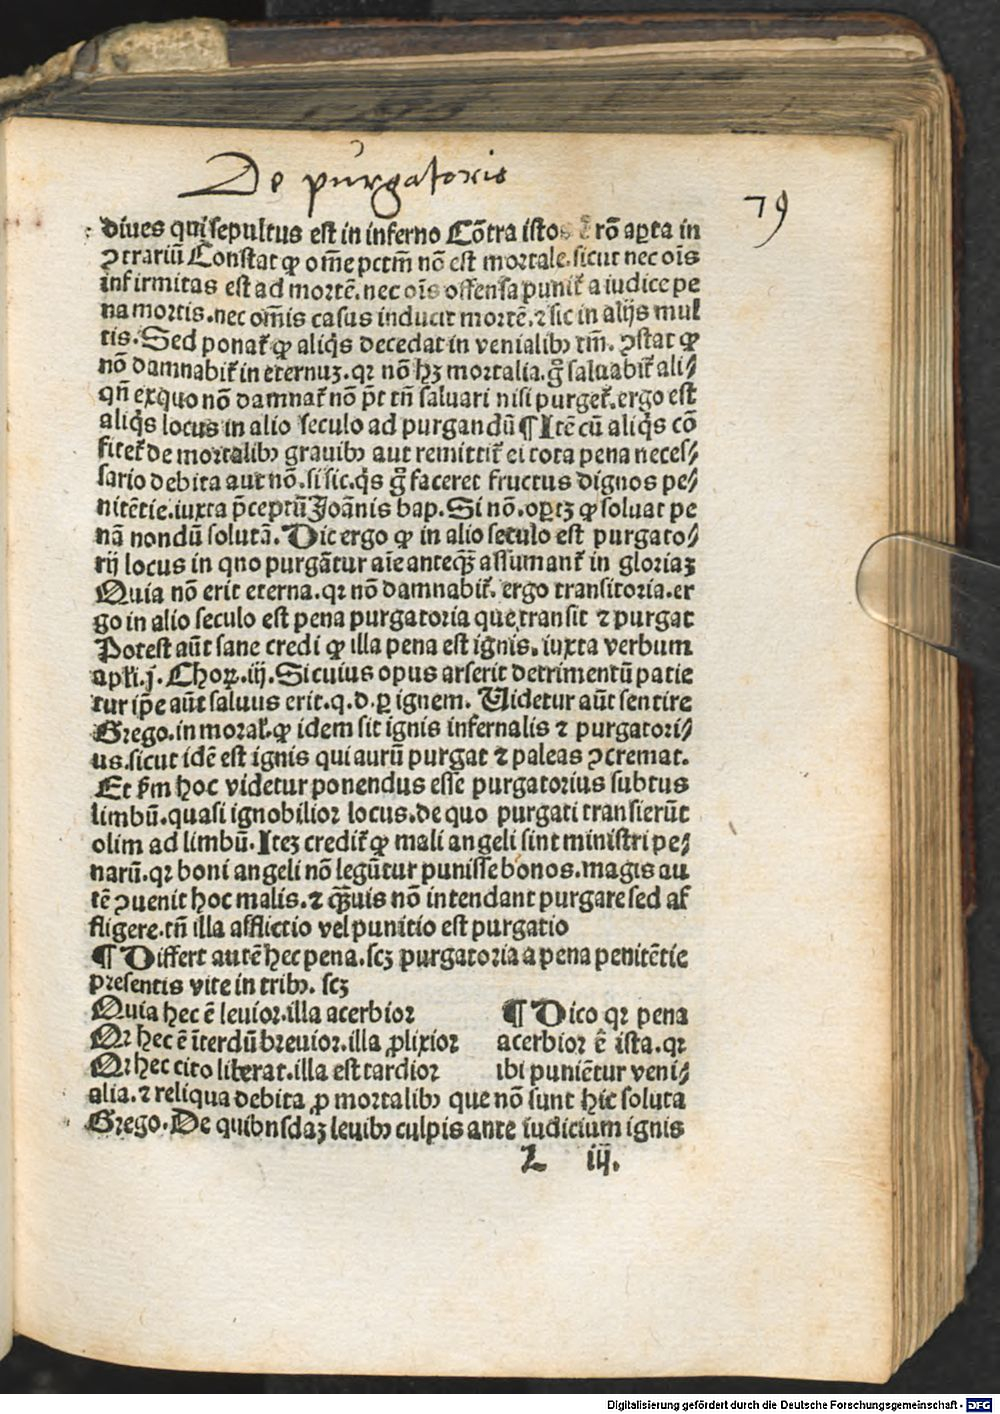 De purgatoris
79
diues qui sepultus est in inferno Cōtra istos ē rō aꝑta in
ꝯtrariū Constat ꝙ om̄e pctm̄ nō est mortale. sicut nec oīs
infirmitas est ad mortē. nec oīs offensa punit᷑ a iudice pe
na mortis. nec om̄is casus inducit mortē. ⁊ sic in alijs mul
tis. Sed ponat᷑ ꝙ aliq̇s decedat in venialibꝰ tm̄. ꝯstat ꝙ
nō damnabit᷑ in eternuꝫ. qꝛ nō hꝫ mortalia. g̊ saluabit᷑ ali⸗
qn̄ exquo nō damnat᷑ nō p̄t tn̄ saluari nisi purget᷑. ergo est
aliq̇s locus in alio seculo ad purgandū ¶ Itē cū aliq̇s cō
fitet᷑ de mortalibꝰ grauibꝰ aut remittit᷑ ei tota pena neces⸗
sario debita aut nō. si sic. q̇s g̊ faceret fructus dignos pe⸗
nitētie. iuxta p̄ceptū Joānis bap. Si nō. oꝑtꝫ ꝙ soluat pe
nā nondū solutā. Dic ergo ꝙ in alio seculo est purgato⸗
rij locus in quo purgātur aīe anteqꝫ̄ assumant᷑ in gloriaꝫ
Quia nō erit eterna. qꝛ nō damnabit᷑. ergo transitoria. er
go in alio seculo est pena purgatoria que transit ⁊ purgat
Potest aūt sane credi ꝙ illa pena est ignis. iuxta verbum
apl̄i. j. Choꝝ. iij. Si cuius opus arserit detrimentū patie
tur ip̄e aūt saluus erit. q. d. ꝑ ignem. Uidetur aūt sentire
Grego. in moral᷑. ꝙ idem sit ignis infernalis ⁊ purgatori⸗
us. sicut idē est ignis qui aurū purgat ⁊ paleas ꝯcremat.
Et ẜm hoc videtur ponendus esse purgatorius subtus
limbū. quasi ignobilior locus. de quo purgati transierūt
olim ad limbū. Iteꝫ credit᷑ ꝙ mali angeli sint ministri pe⸗
narū. qꝛ boni angeli nō legūtur punisse bonos. magis au
tē ꝯuenit hoc malis. ⁊ qꝫ̄uis nō intendant purgare sed af
fligere. tn̄ illa afflictio vel punitio est purgatio
¶ Differt autē hec pena. scꝫ purgatoria a pena penitētie
presentis vite in tribꝰ. scꝫ
Quia hec ē leuior. illa acerbior
Qꝛ hec ē īterdū breuior. illa ꝓlixior
Qꝛ hec cito liberat. illa est tardior
¶ Dico qꝛ pena
acerbior ē ista. qꝛ
ibi puniētur veni⸗
alia. ⁊ reliqua debita ꝓ mortalibꝰ que nō sunt hic soluta
Grego. De quibnsdaꝫ leuibꝰ culpis ante iudicium ignis
L iij.
Digitalisierung gefördert durch die Deutsche Forschungsgemeinschaft - DFG